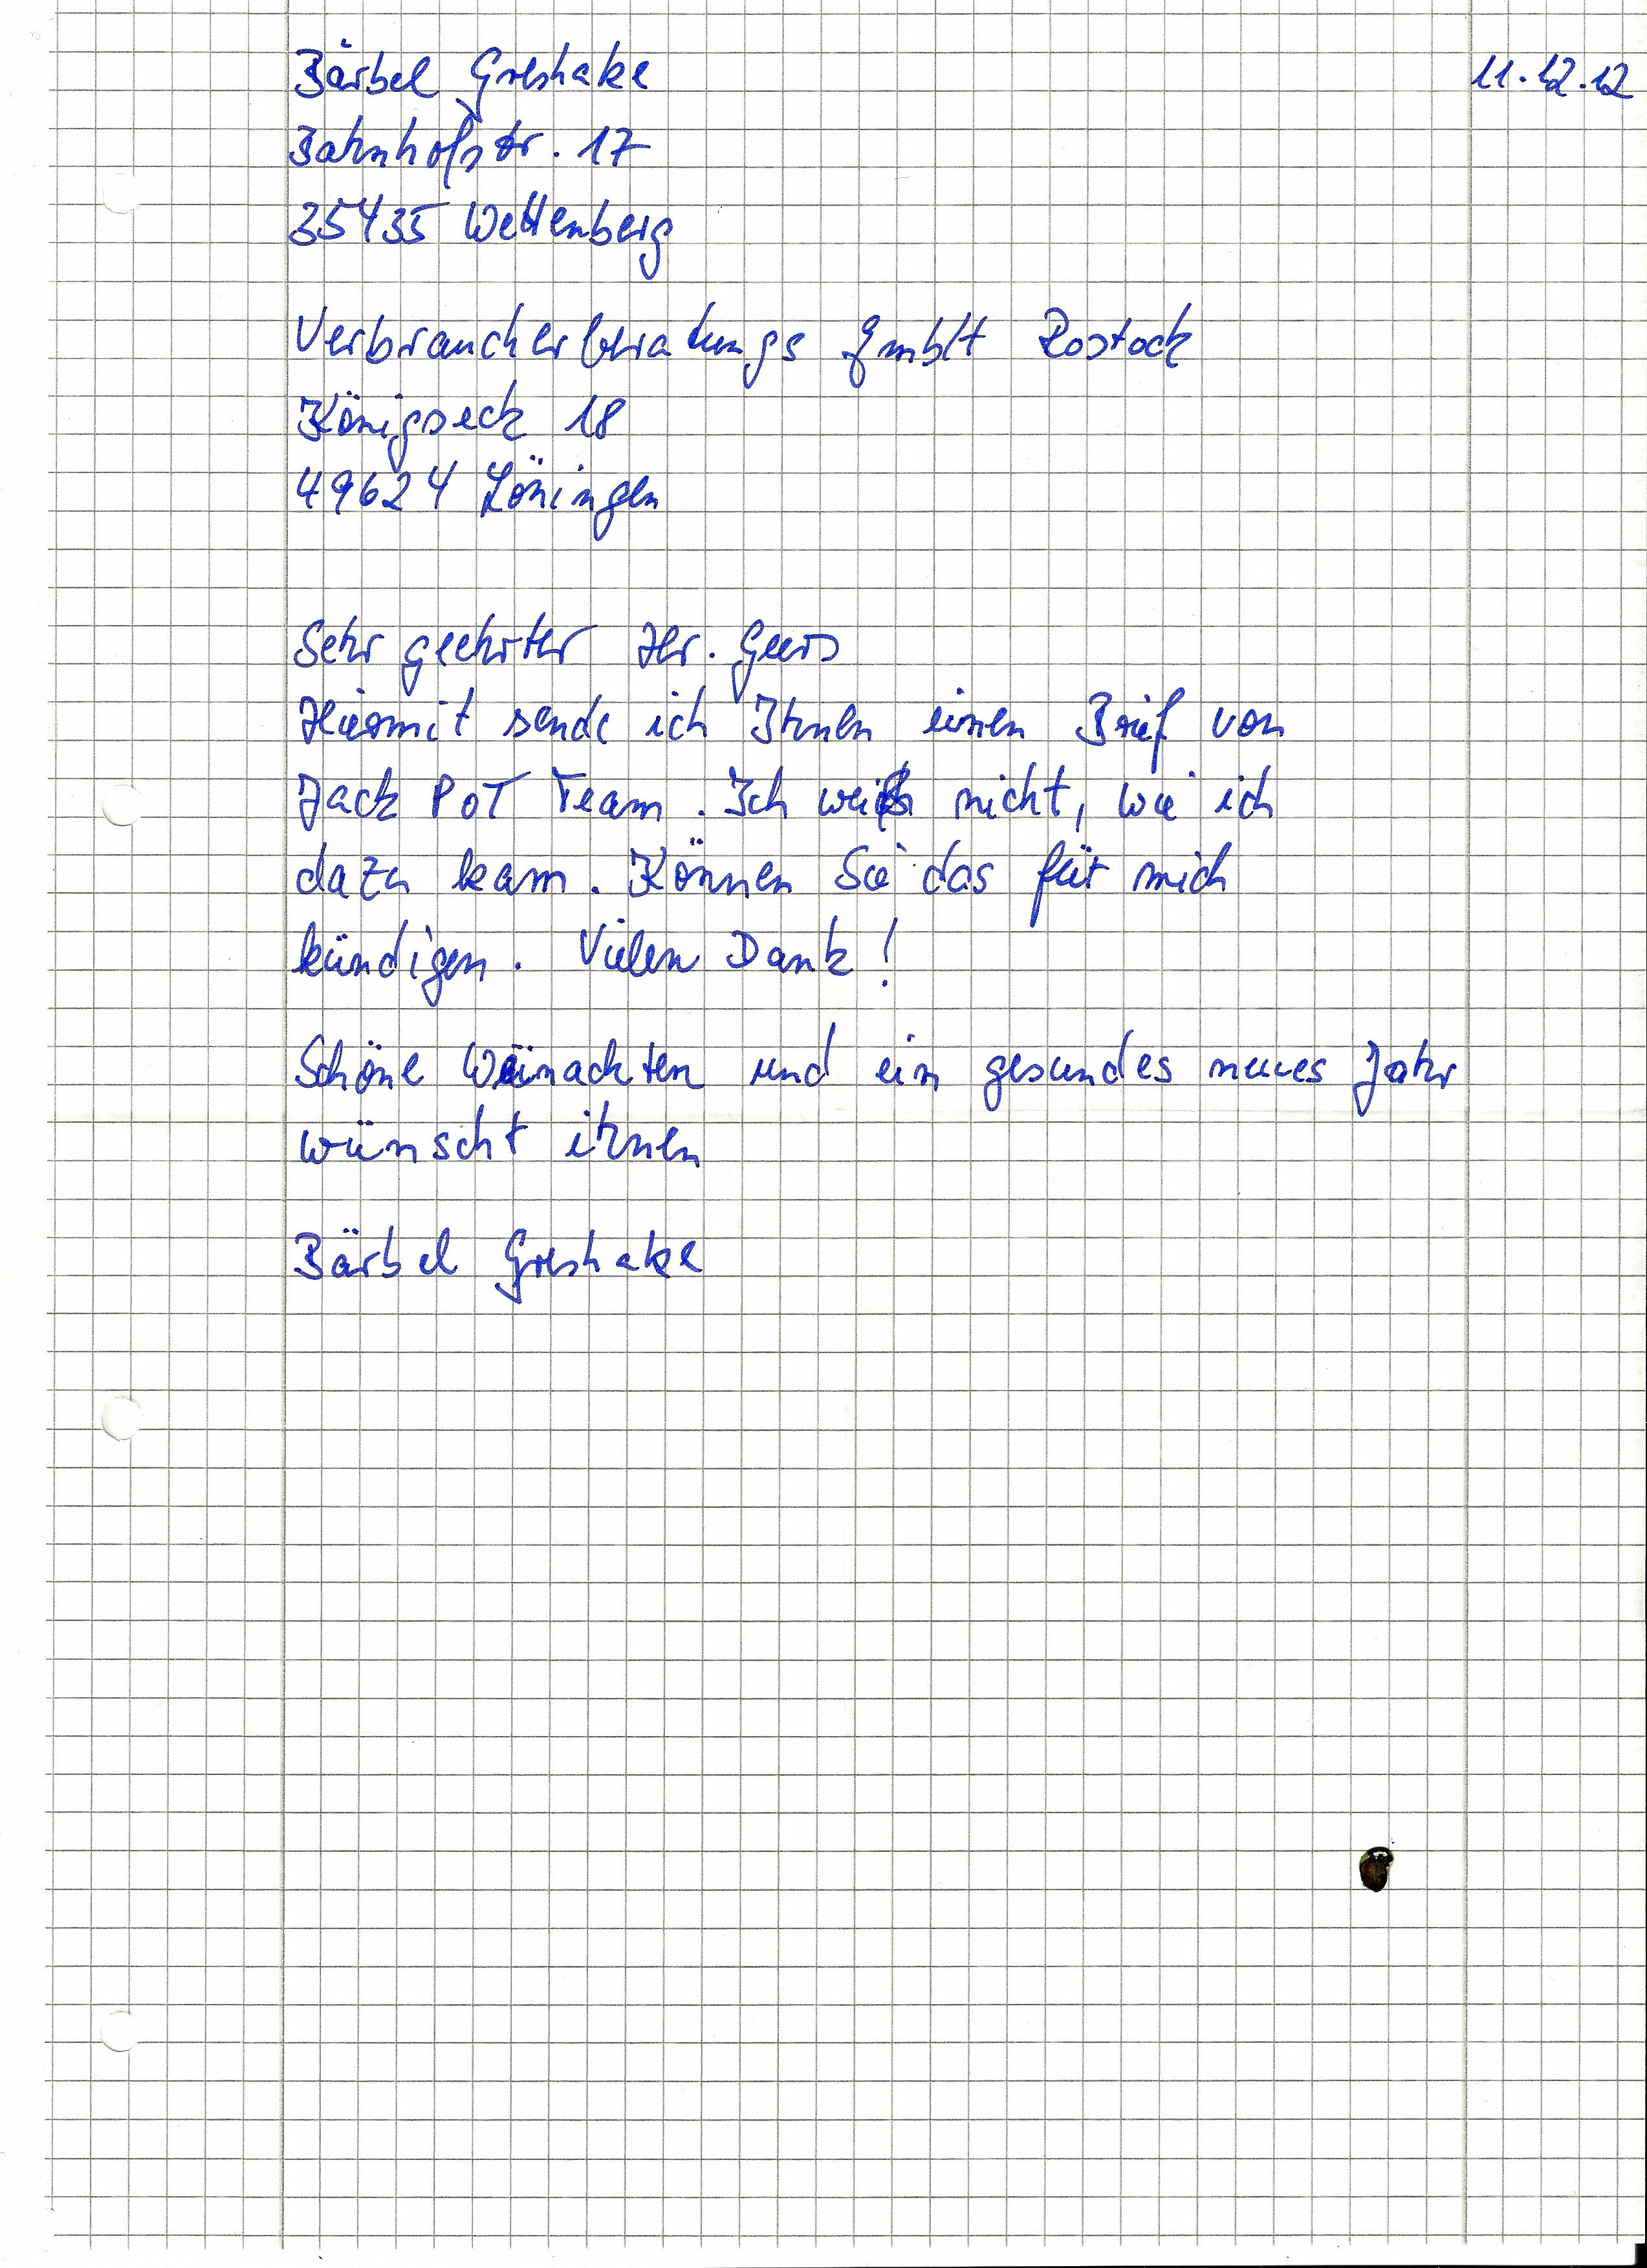 Bärbel Greshake 11.12.12
Bahnhofstr. 17
35435 Wettenberg
Verbraucherberatungs GmbH Rostock
Königseck 18
49624 Löningen
Sehr geehrter Hr. Geers
Hiermit sende ich Ihnen einen Brief von
Jack PoT Team. Ich weiß nicht, wie ich
dazu kam. Können Sie das für mich
kündigen. Vielen Dank!
Schöne Weinachten und ein gesundes neues Jahr
wünscht ihnen
Bärbel Greshake